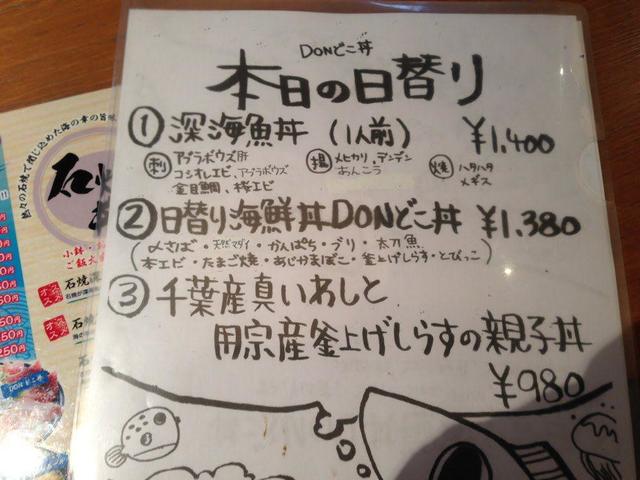 DONどこ丼
本日の日替り
① 深海魚丼 (1人前) ¥1,400
刺 アブラボウズ肝
コシオレエビ、アブラボウズ
金目鯛、桜エビ
揚 メヒカリ、アンデン
あんこう
焼 ハタハタ
メギス
② 日替り海鮮丼DONどこ丼 ¥1,380
(〆さば・天然マダイ・かんぱち・ブリ・太刀魚
本エビ・たまご焼・あじかまぼこ・釜上げしらす・とびっこ)
③ 千葉産真いわしと
用宗産釜上げしらすの親子丼
¥980
々の石焼で閉じ込めた海の幸の旨
石焼
小鉢・
ご飯大盛
オススメ 石焼
オススメ 石焼
50円
250円
DONどこ丼